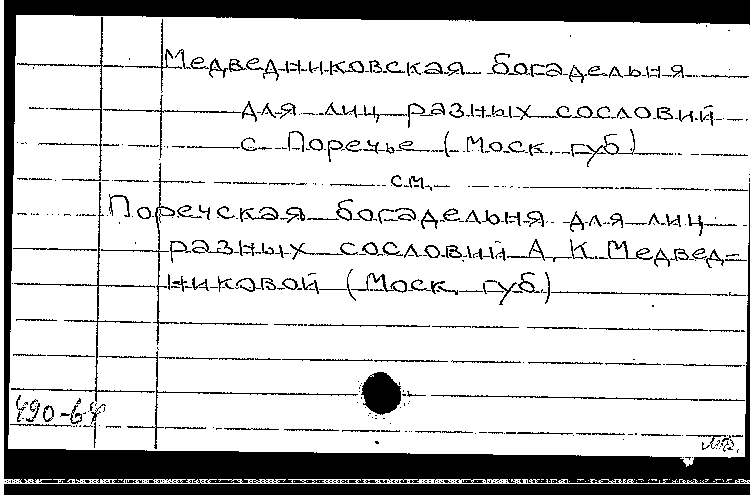 Медведниковская богадельня
для лиц разных сословий
с. Поречье (Моск. губ)
см.
Поречская богадельня для лиц
разных сословий А. К. Медвед=
никовой (Моск. губ.)
490-64